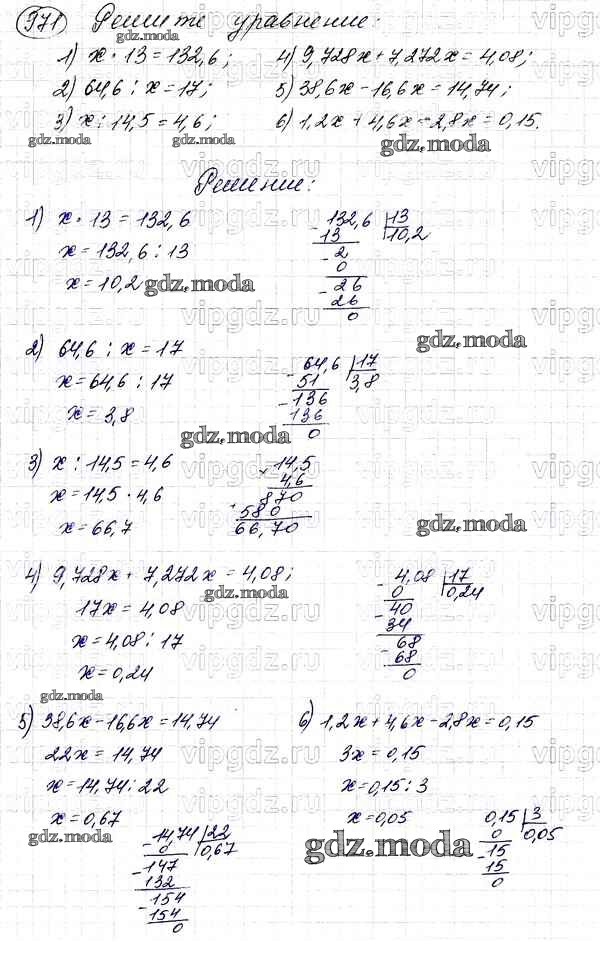 971 Решите уравнение:
1) x · 13 = 132,6; 4) 9,728x + 7,272x = 4,08;
2) 64,6 : x = 17; 5) 38,6x - 16,6x = 14,74;
3) x : 14,5 = 4,6; 6) 1,2x + 4,6x - 2,8x = 0,15.
gdz.moda gdz.moda gdz.moda
Решение:
1) x · 13 = 132,6
x = 132,6 : 13
x = 10,2 gdz.moda
- 132,6 | 13
13 10,2
- 2
0
- 26
26
0
gdz.moda
2) 64,6 : x = 17
x = 64,6 : 17
x = 3,8
gdz.moda
- 64,6 | 17
51 3,8
- 136
136
0
3) x : 14,5 = 4,6
x = 14,5 · 4,6
x = 66,7
× 14,5
4,6
870
+ 580
66,70
gdz.moda
4) 9,728x + 7,272x = 4,08;
17x = 4,08 gdz.moda
x = 4,08 : 17
x = 0,24
gdz.moda
- 4,08 | 17
0 0,24
- 40
34
- 68
68
0
5) 38,6x - 16,6x = 14,74
22x = 14,74
x = 14,74 : 22
x = 0,67
gdz.moda
- 14,74 | 22
0 0,67
- 147
132
- 154
154
0
6) 1,2x + 4,6x - 2,8x = 0,15
3x = 0,15
x = 0,15 : 3
x = 0,05
gdz.moda
0,15 | 3
0 0,05
- 15
15
0
vipgdz.ru